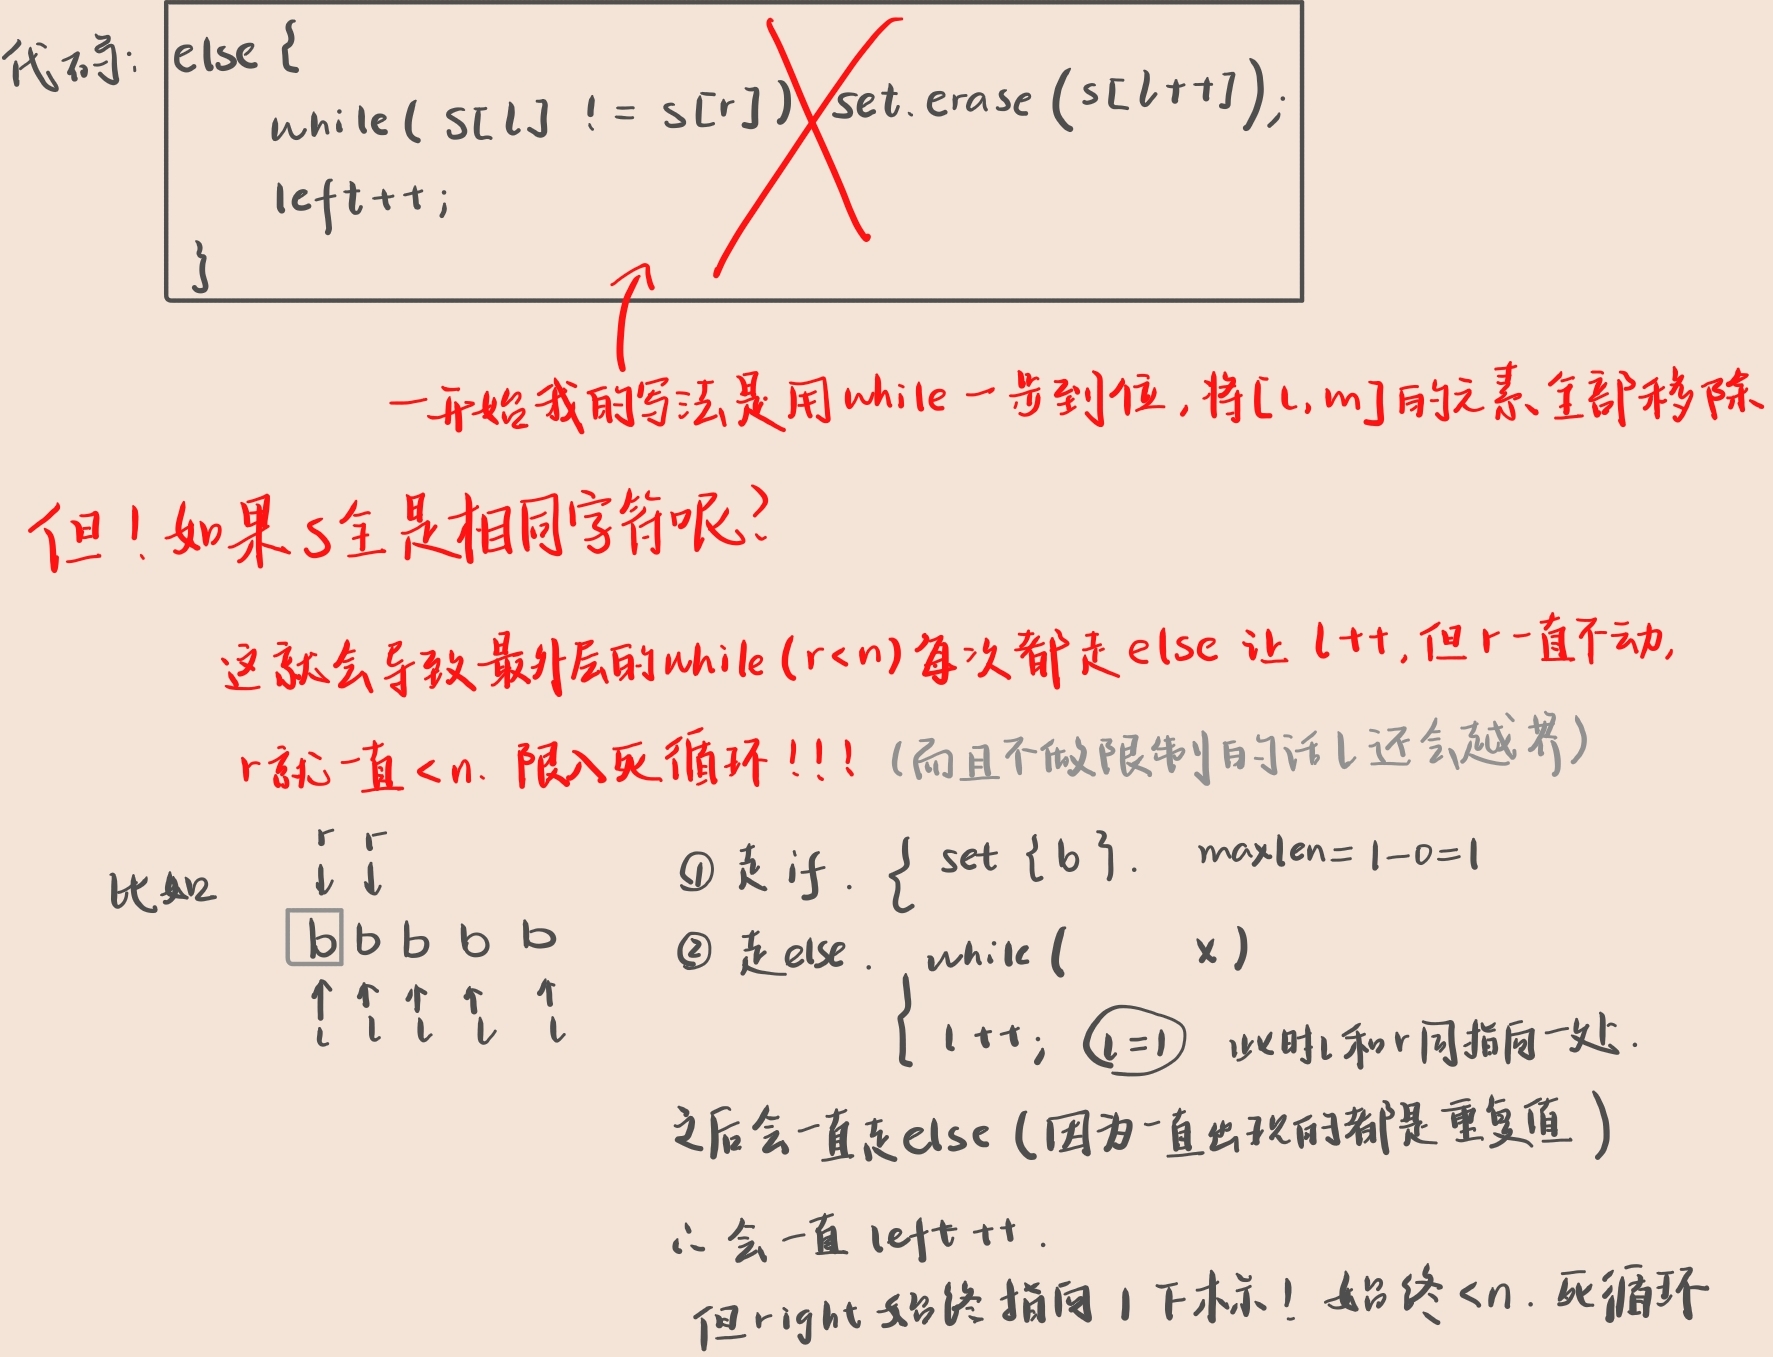 代码: else {
while( s[l] != s[r]) set.erase(s[l++]);
left++;
}
一开始我的写法是用while一步到位,将[l,m]的元素全部移除
但!如果s全是相同字符呢?
这就会导致最外层的while(r<n)每次都走else 让 l++,但r一直不动,
r就一直<n. 限入死循环!!!(而且不做限制的话l还会越界)
比如
r r
↓ ↓
b b b b b
↑ ↑ ↑ ↑ ↑
l l l l l
① 走if. { set {b}. maxlen=1-0=1
② 走else. while( x)
{ l++; l=1 此时l和r同指向一处.
之后会一直走else(因为一直出现的都是重复值)
∴ 会一直left++.
但right始终指向1下标!始终<n.死循环